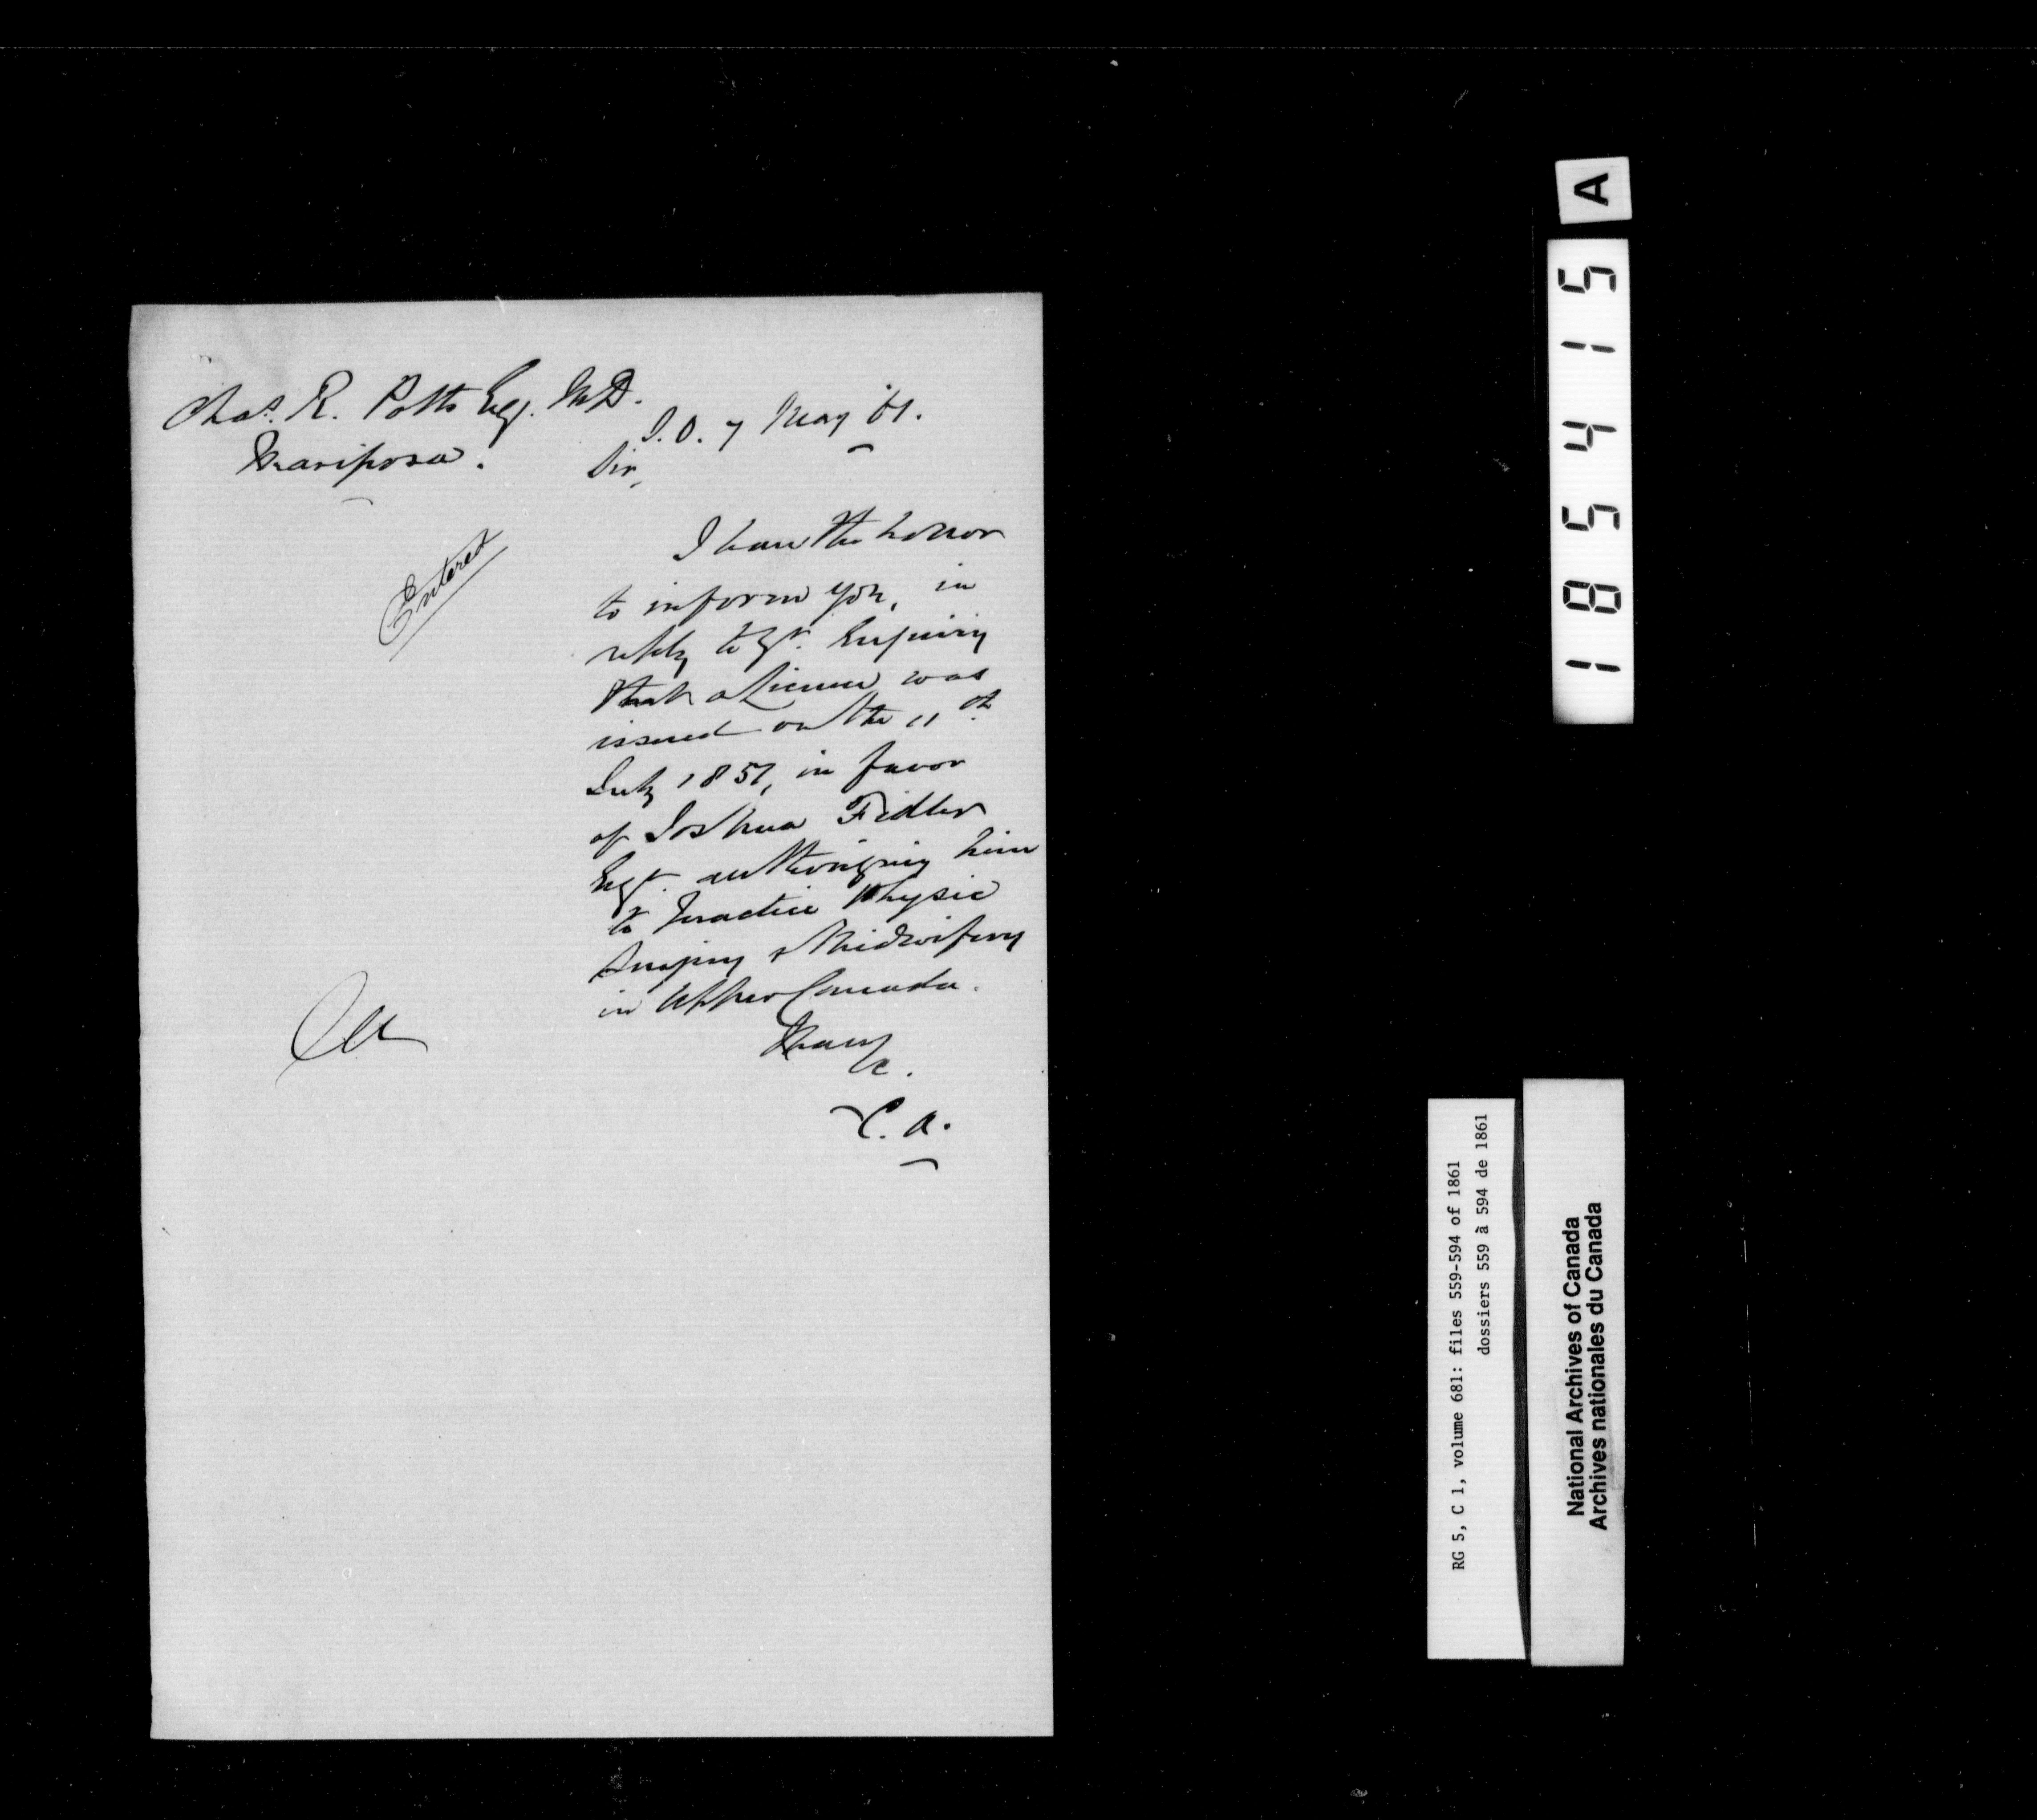 Chas. R. Potts Esq. M.D.
Mariposa.
S.O. 7 May 61.
Sir,
Entered
I have the honor
to inform you, in
reply to yr. Enquiry
that a License was
issued on the 11th
July 1857, in favor
of Joshua Fidler
Esqr. authorizing him
to practice Physic
Surgery & Midwifery
in Upper Canada.
I have
&c.
C. A.
185415 A
RG 5, C 1, volume 681: files 559-594 of 1861
dossiers 559 à 594 de 1861
National Archives of Canada
Archives nationales du Canada